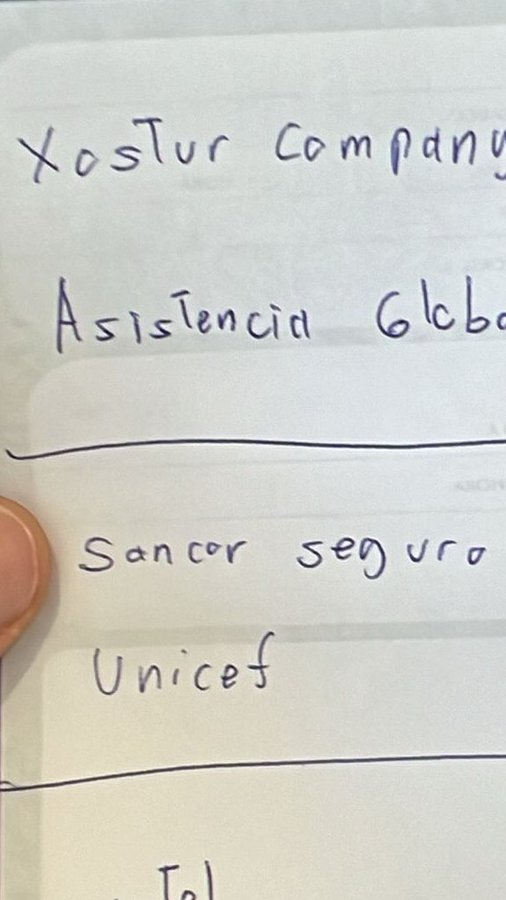 XosTur Company
AsisTencia Globa
Sancor seguro
Unicef
Tel